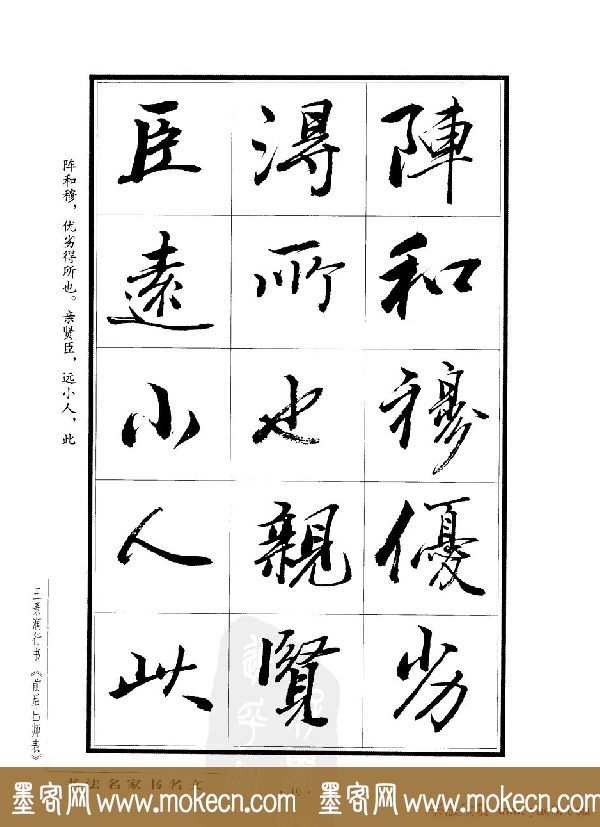 陣和穆優劣
得所也親賢
臣遠小人此
阵和穆，优劣得所也。亲贤臣，远小人，此
行书《前后出师表》
书法名家书名文
墨客网 www.mokecn.com 墨客网 www.mokecn.com